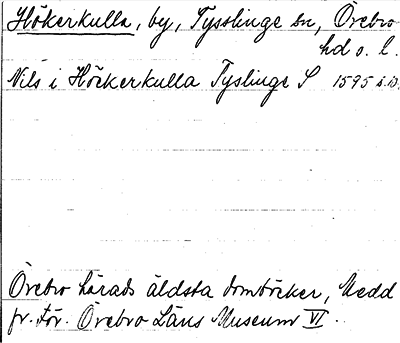 Hökerkulla, by, Tysslinge sn, Örebro
hd o. l.
Nils i Höckerkulla Tyslinge S 1595 s. 13.
Örebro härads äldsta domböcker, Medd
fr. För. Örebro Läns Museum VI.